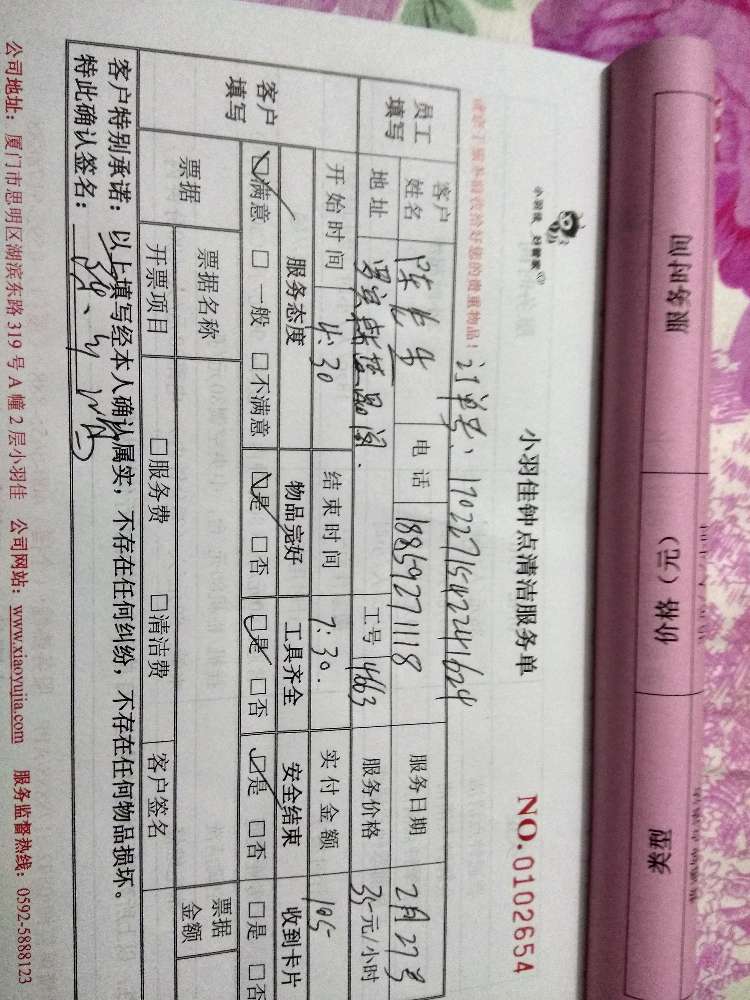 小羽佳 好管家
小羽佳钟点清洁服务单
NO.0102654
请您于服务前收拾好您的贵重物品！
订单号：17022715472241624
员工填写
客户姓名
电话 18859271118
服务日期 2月27号
地址
工号 4663
服务价格 35元/小时
开始时间 4:30
结束时间 7:30.
实付金额 105
客户填写
服务态度 物品完好 工具齐全 安全结束 收到卡片
☑满意 □一般 □不满意 ☑是 □否 ☑是 □否 ☑是 □否 □是 □否
票据
票据名称
票据金额
开票项目 □服务费 □清洁费 客户签名
客户特别承诺：以上填写经本人确认属实，不存在任何纠纷，不存在任何物品损坏。
特此确认签名：
公司地址：厦门市思明区湖滨东路 319 号 A 幢 2 层小羽佳 公司网站：www.xiaoyujia.com 服务监督热线：0592-5888123
服务时间
价格（元）
类型